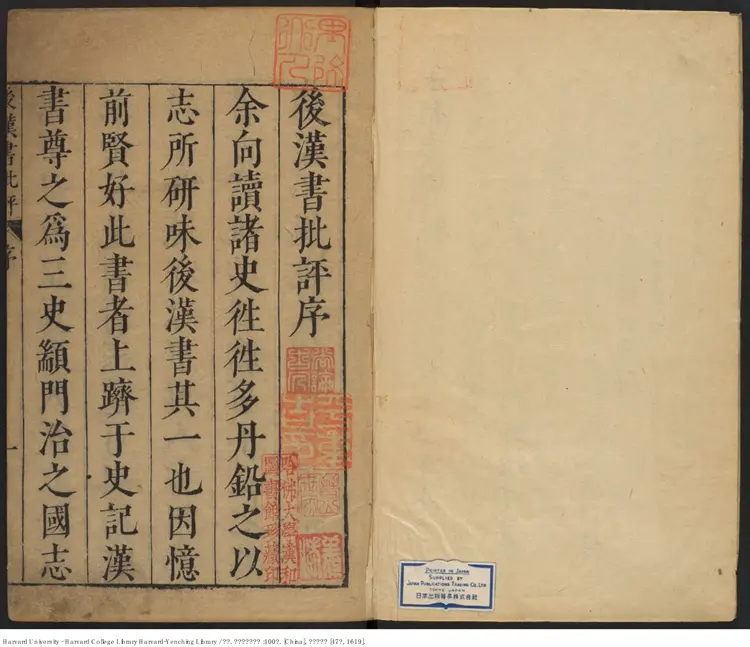 後漢書批評序
余向讀諸史徃徃多丹鉛之以
志所研味後漢書其一也因憶
前賢好此書者上躋于史記漢
書尊之爲三史顓門治之國志
後漢書批評 序 一
哈佛大學漢和
圖書館珍藏印
PRINTED IN JAPAN
SUPPLIED BY
JAPAN PUBLICATIONS TRADING CO., LTD.
TOKYO JAPAN
日本出版貿易株式會社
Harvard University - Harvard College Library Harvard-Yenching Library / ??. ??????? :100?. [China], ????? [47?, 1619].